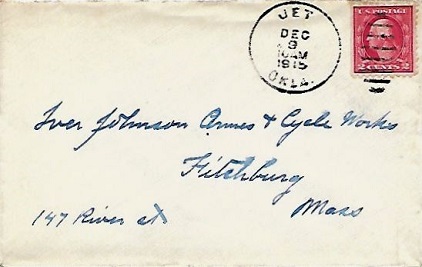 JET
DEC
9
10AM
1915
OKLA.
U.S. POSTAGE
2 CENTS 2
Iver Johnson Arms & Cycle Works
Fitchburg
Mass
147 River st